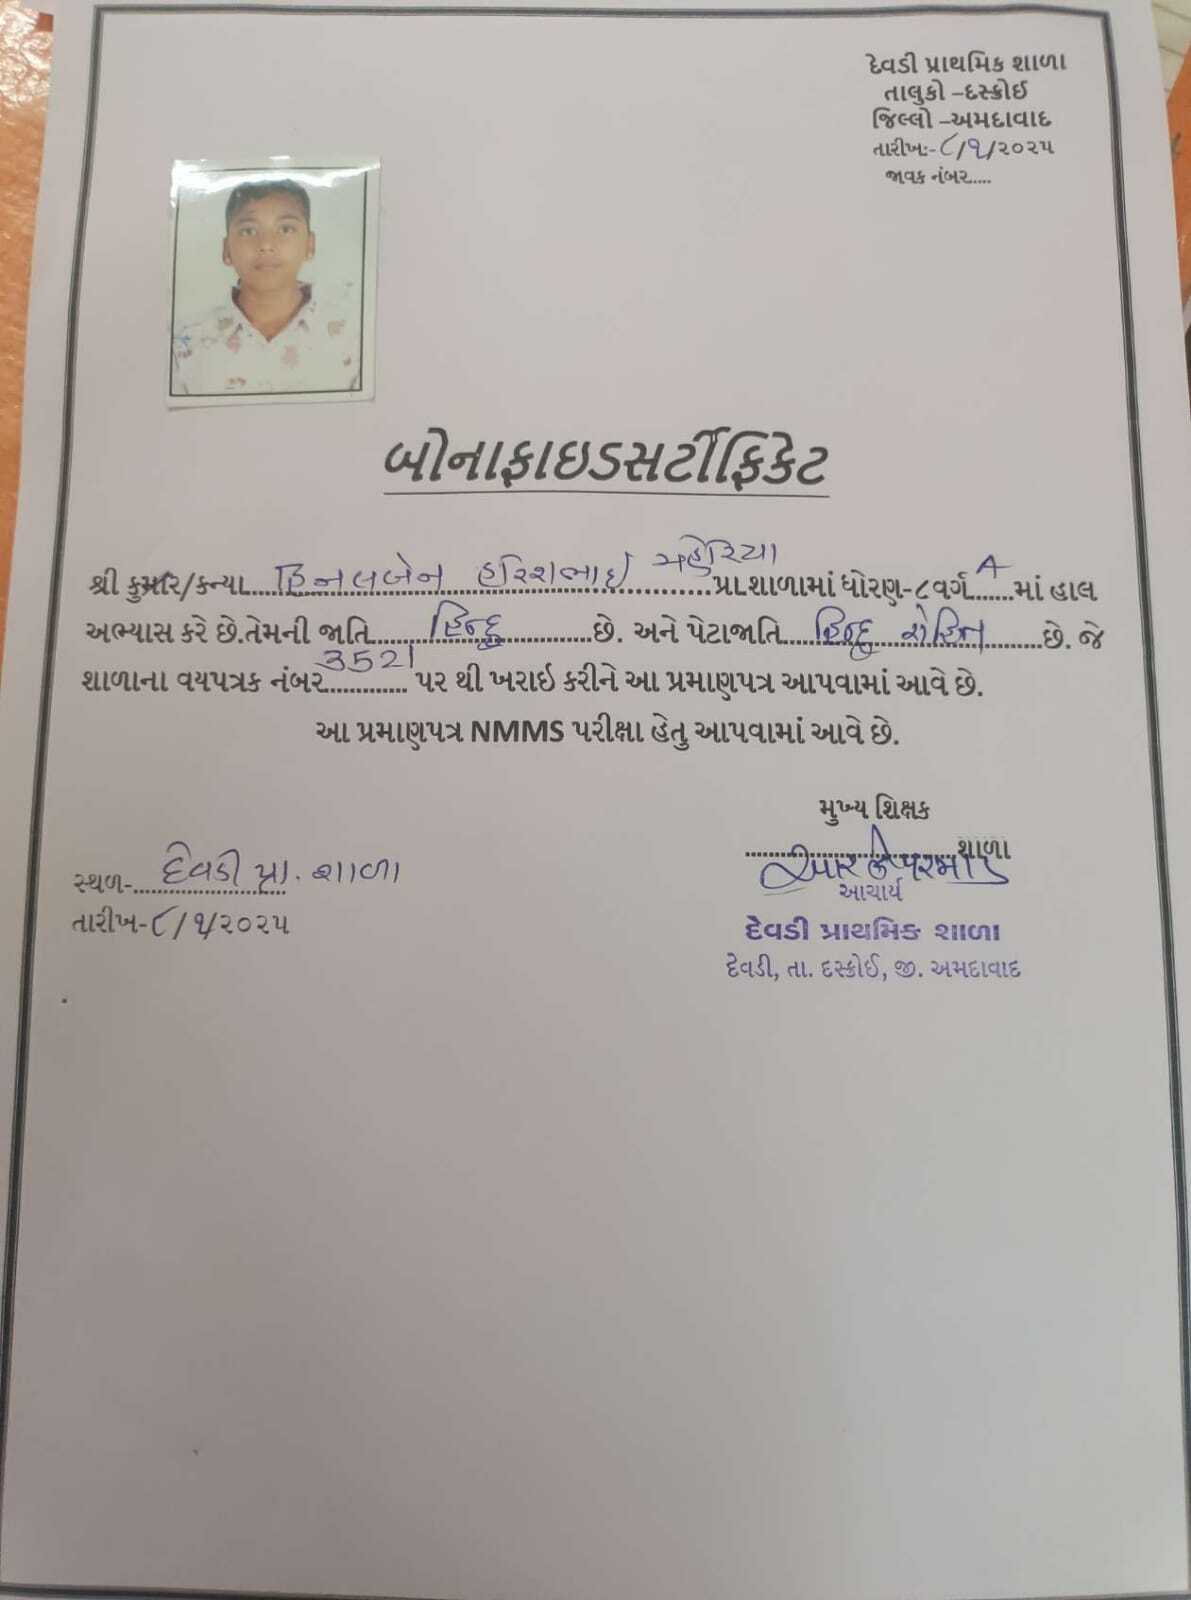 દેવડી પ્રાથમિક શાળા
તાલુકો –દસ્ક્રોઈ
જિલ્લો –અમદાવાદ
તારીખ:- ૮/૧/૨૦૨૫
જાવક નંબર.....
બોનાફાઇડસર્ટીફિકેટ
શ્રી કુમાર/કન્યા હિનલબેન હરિશભાઇ મહેરિયા પ્રા.શાળામાં ધોરણ-૮વર્ગ A માં હાલ
અભ્યાસ કરે છે.તેમની જાતિ હિન્દુ છે. અને પેટાજાતિ હિન્દુ રોહિત છે. જે
શાળાના વયપત્રક નંબર 3521 પર થી ખરાઇ કરીને આ પ્રમાણપત્ર આપવામાં આવે છે.
આ પ્રમાણપત્ર NMMS પરીક્ષા હેતુ આપવામાં આવે છે.
મુખ્ય શિક્ષક
શાળા
આર કે પરમાર
આચાર્ય
સ્થળ- દેવડી પ્રા. શાળા
તારીખ-૮/૧/૨૦૨૫
દેવડી પ્રાથમિક શાળા
દેવડી, તા. દસ્ક્રોઈ, જી. અમદાવાદ